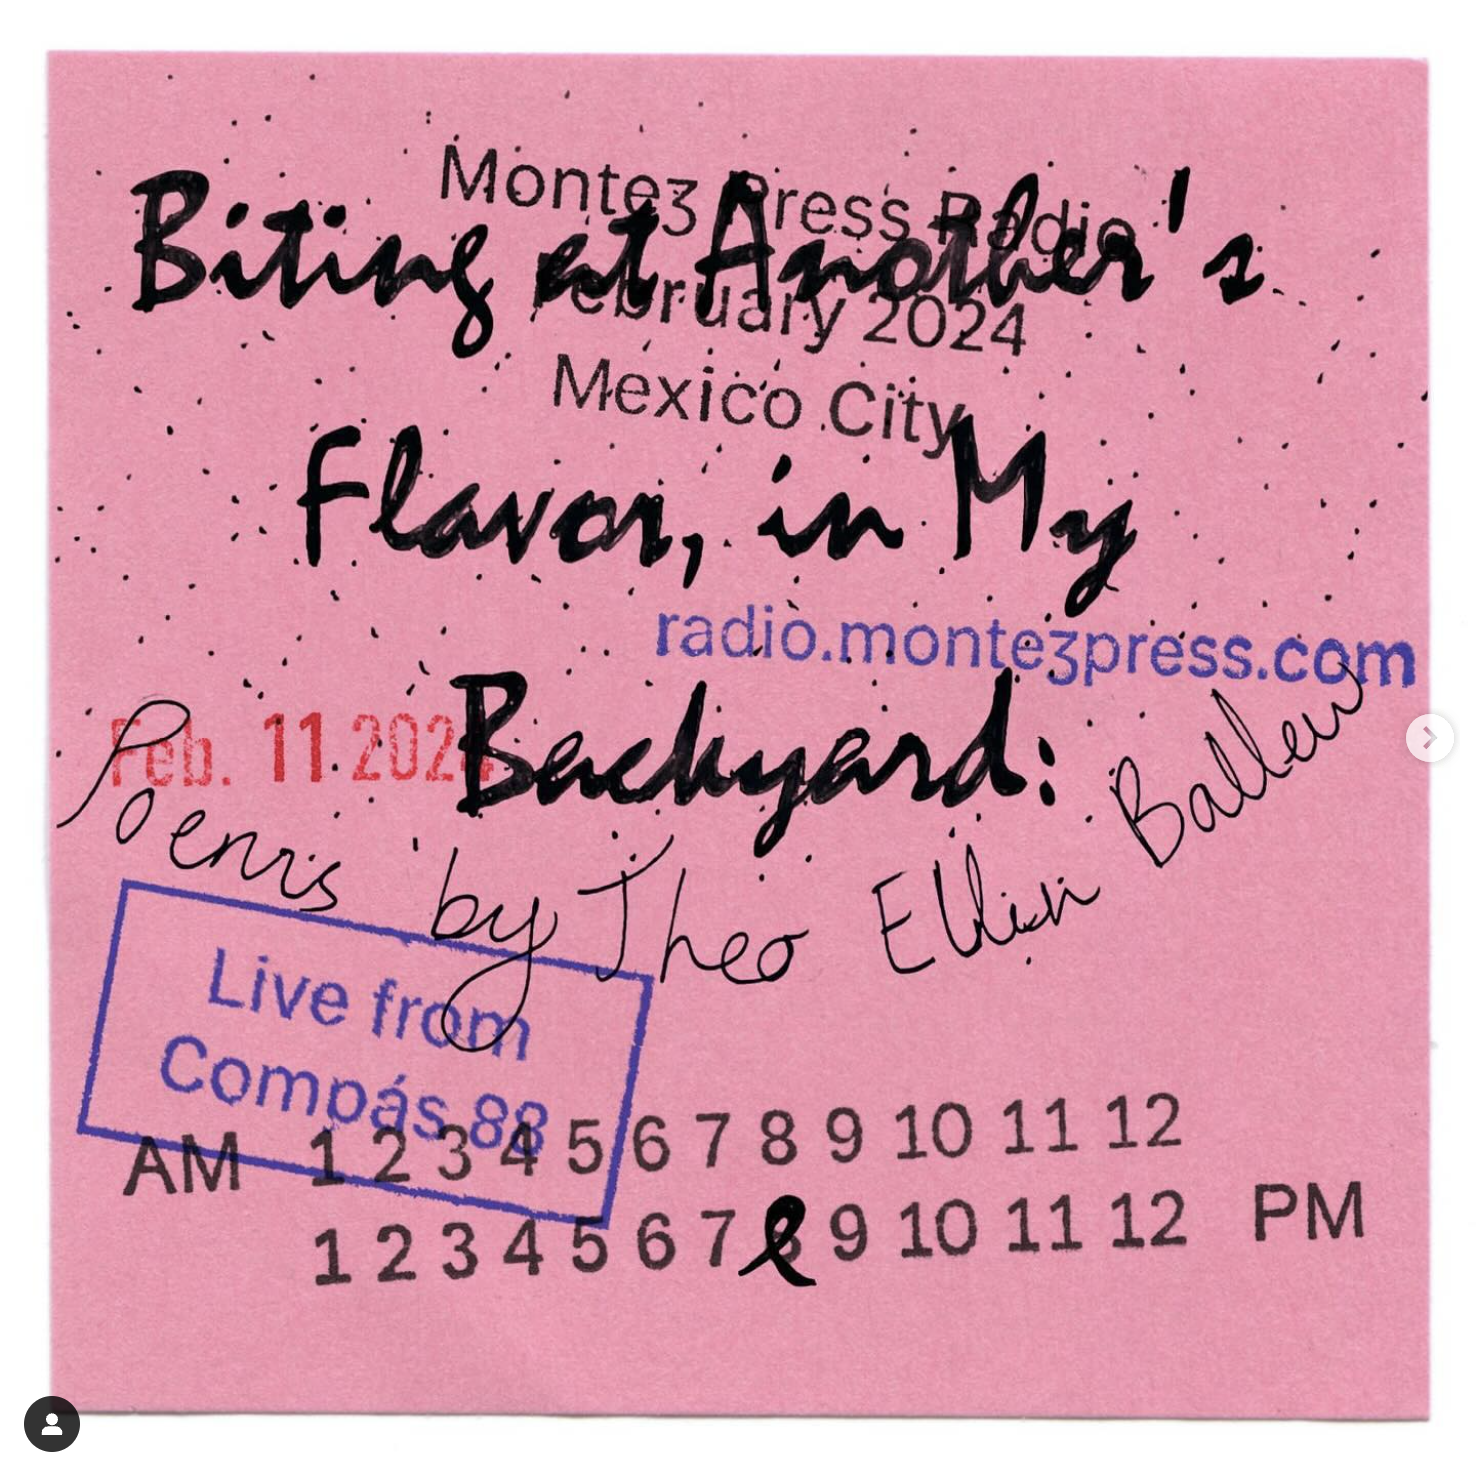 Montez Press Radio
February 2024
Mexico City
Biting at Another's
Flavor, in My
Backyard:
radio.montezpress.com
Feb. 11 2024
Poems by Theo Ellin Ballew
Live from
Compás 88
AM 1 2 3 4 5 6 7 8 9 10 11 12
1 2 3 4 5 6 7 8 9 10 11 12 PM